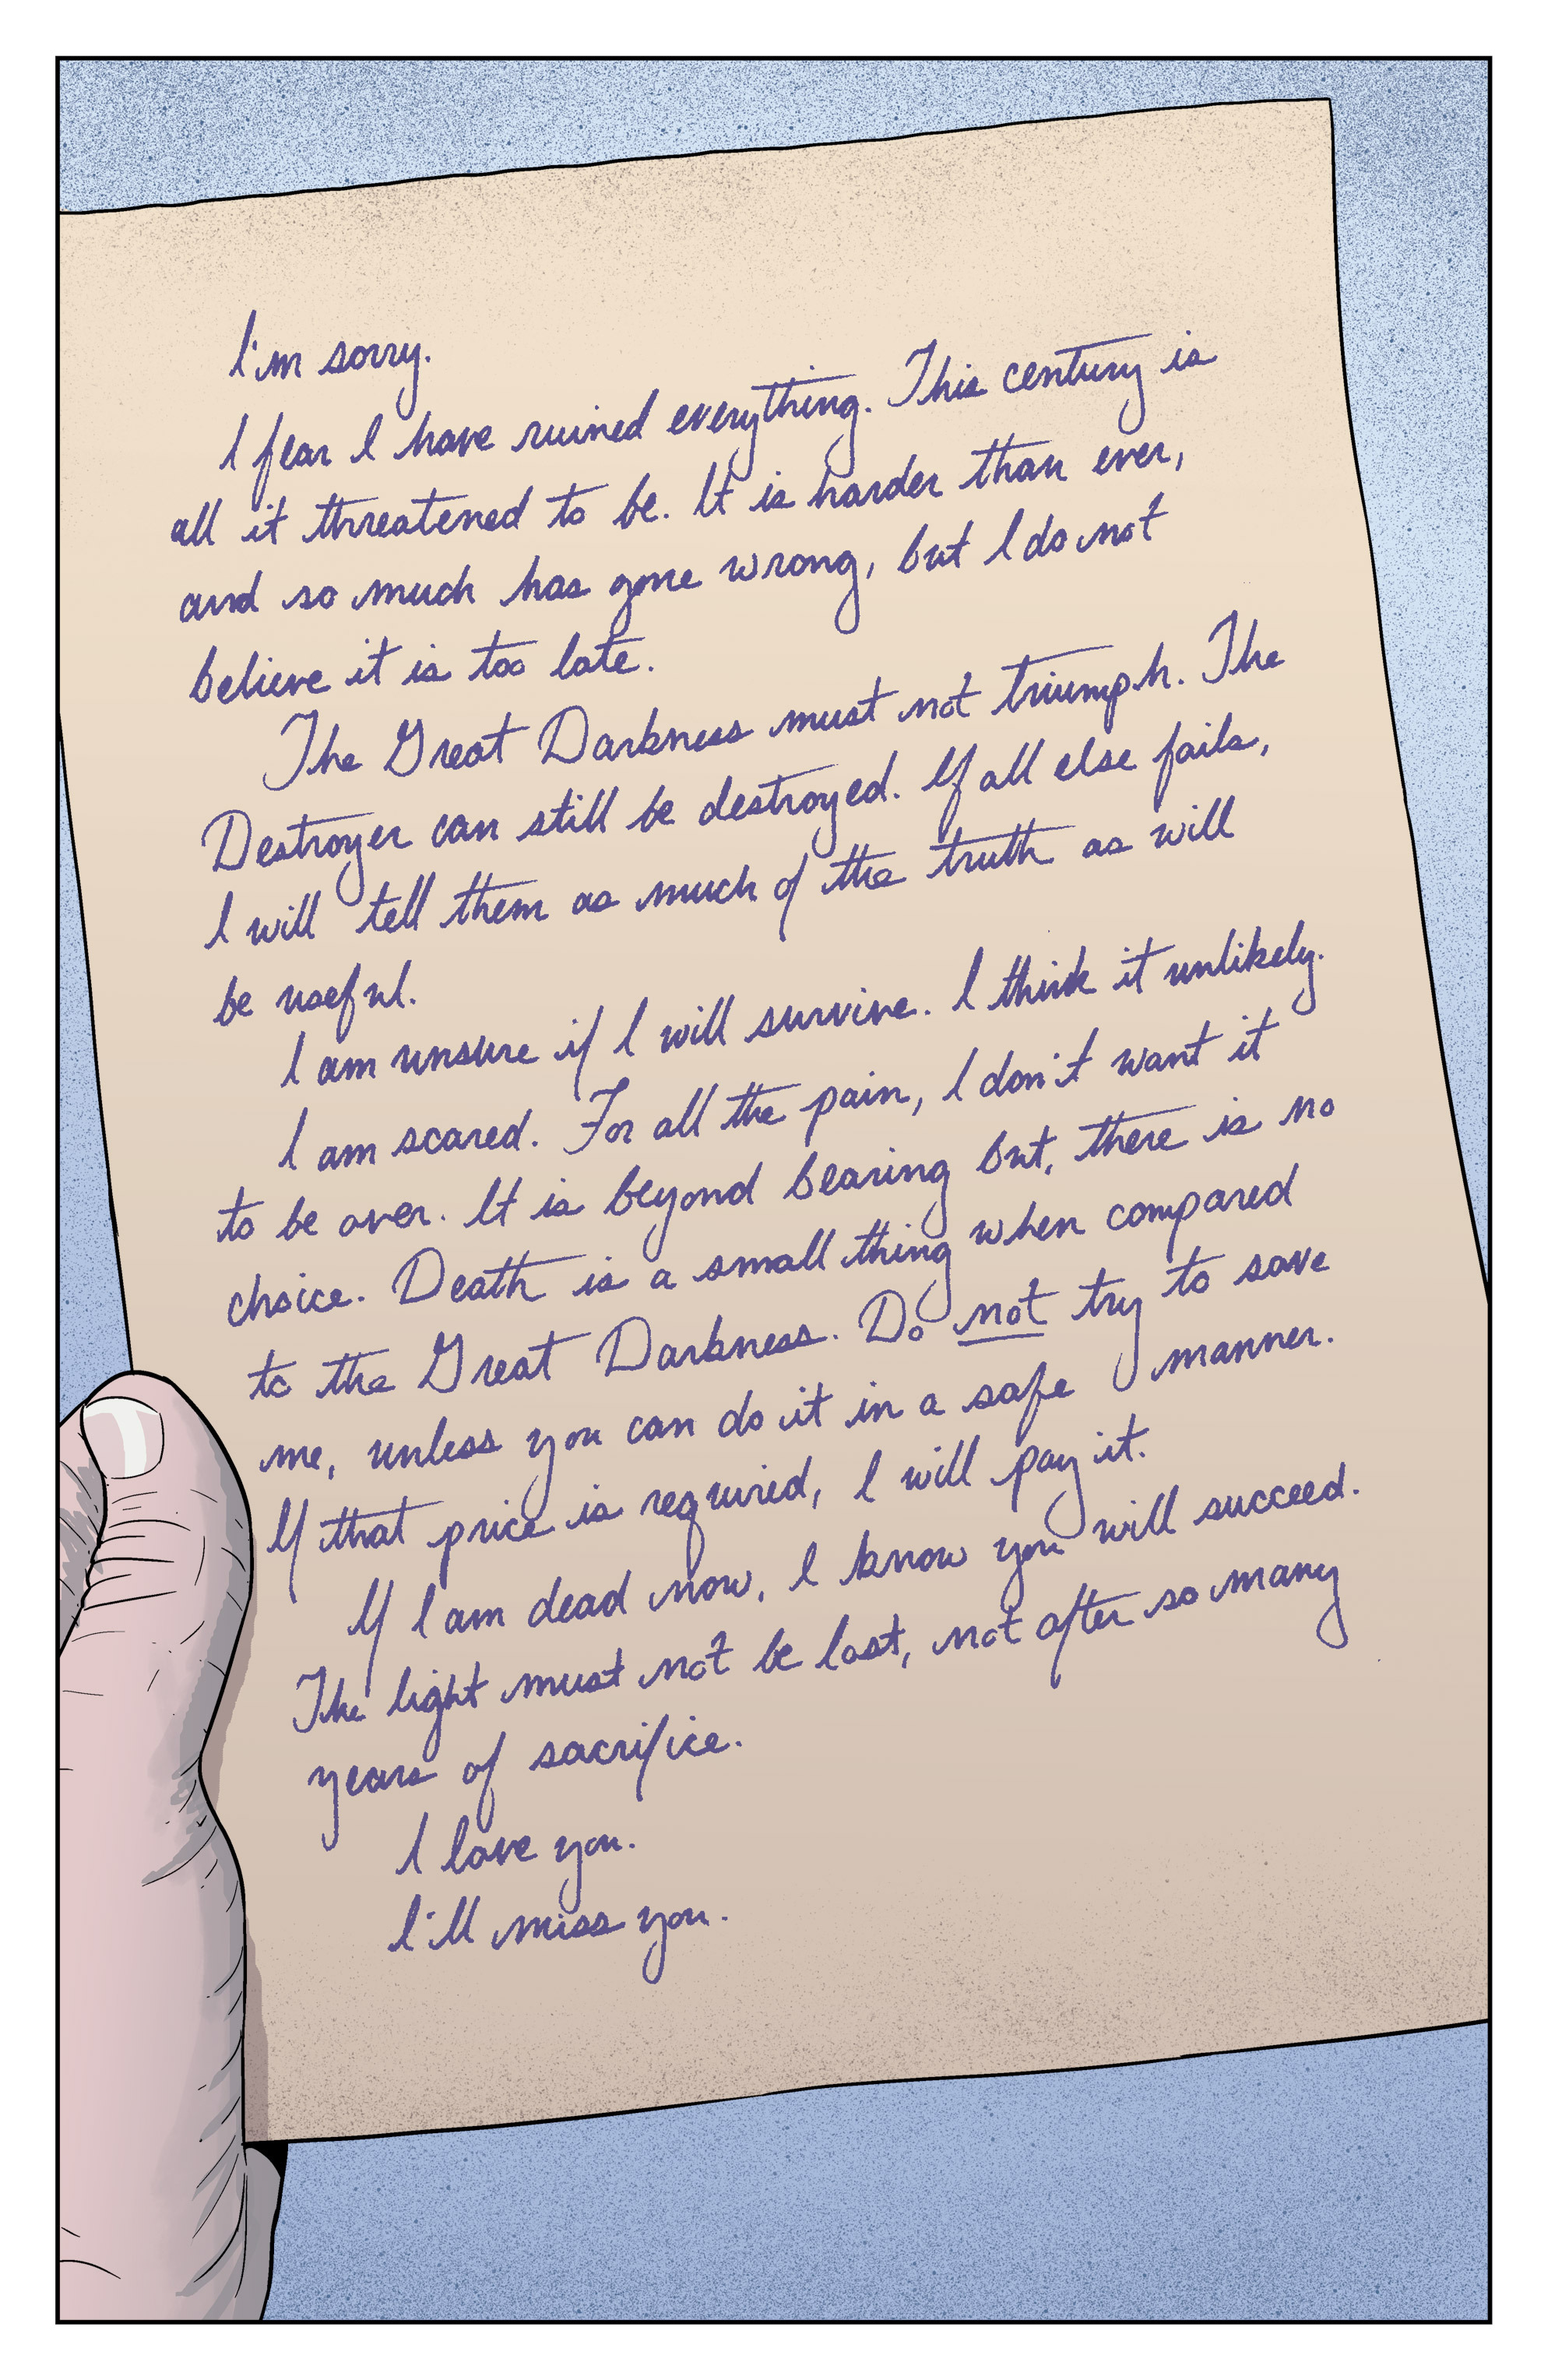 I'm sorry.
I fear I have ruined everything. This century is
all it threatened to be. It is harder than ever,
and so much has gone wrong, but I do not
believe it is too late.
The Great Darkness must not triumph. The
Destroyer can still be destroyed. If all else fails,
I will tell them as much of the truth as will
be useful.
I am unsure if I will survive. I think it unlikely.
I am scared. For all the pain, I don't want it
to be over. It is beyond bearing but, there is no
choice. Death is a small thing when compared
to the Great Darkness. Do not try to save
me, unless you can do it in a safe manner.
If that price is required, I will pay it.
If I am dead now, I know you will succeed.
The light must not be lost, not after so many
years of sacrifice.
I love you.
I'll miss you.